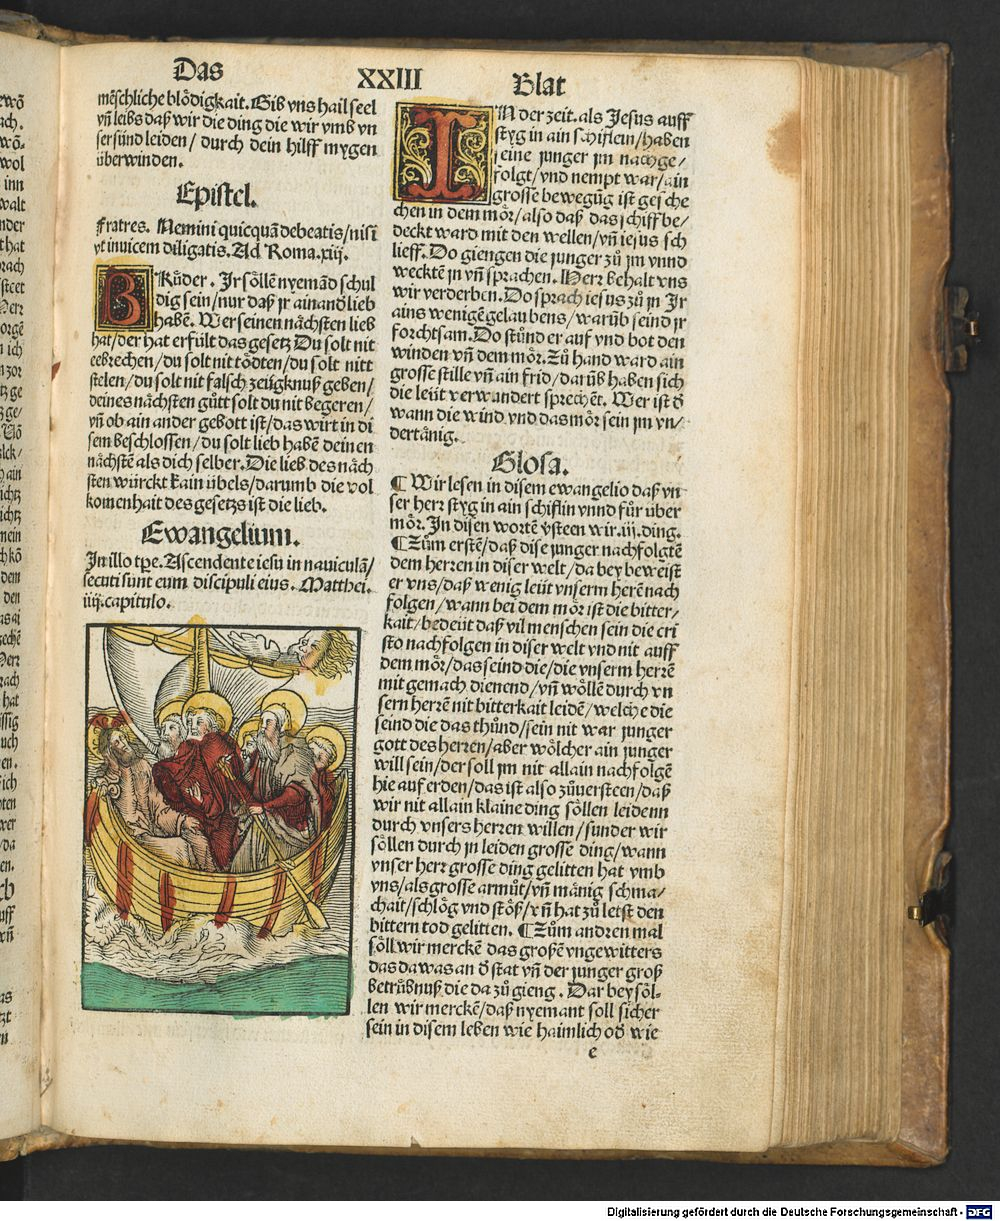 Das XXIII Blat
mẽschliche blödigkait. Gib vns hail seel
vñ leibs daß wir die ding die wir vmb vn
ser sünd leiden / durch dein hilff mygen
überwinden.
Epistel.
Fratres. Nemini quicquā debeatis / nisi
vt inuicem diligatis. Ad Roma. xiij.
BRüder. Ir söllē nyemāđ schul
dig sein / nur daß jr ainanđ lieb
habẽ. Wer seinen nächsten lieb
hat / der hat erfült das gesetz Du solt nit
eebrechen / du solt nit tödten / du solt nitt
stelen / du solt nit falsch zeügknuß geben /
deines nächsten gůtt solt du nit begeren /
vñ ob ain ander gebott ist / das wirt in di
sem beschlossen / du solt lieb habẽ deinen
nächstẽ als dich selber. Die lieb des näch
sten würckt kain übels / darumb die vol
komenhait des gesetzs ist die lieb.
Ewangelium.
In illo tp̄e. Ascendente iesu in nauiculā /
secuti sunt eum discipuli eius. Matthei.
iiij. capitulo.
IN der zeit. als Jesus auff
styg in ain schiflein / haben
seine junger jm nachge /
folgt / vnd nempt war / ain
grosse bewegūg ist gesche
chen in dem mör / also daß das schiff be /
deckt ward mit den wellen / vñ iesus sch
lieff. Do giengen die junger zů jm vnnd
wecktẽ jn vñ sprachen. Herr behalt vns
wir verderben. Do sprach iesus zů jn Ir
ains wenigẽ gelaubens / warūb seind jr
forchtsam. Do stůnd er auf vnd bot den
winden vñ dem mör. Zů hand ward ain
grosse stille vñ ain frid / darūb haben sich
die leüt verwandert sprechẽt. Wer ist đ
wann die wind vnd das mör sein jm vn /
dertänig.
Glosa.
¶ Wir lesen in disem ewangelio daß vn
ser herr styg in ain schiflin vnnd fůr über
mör. In disen wortẽ ṽsteen wir .iij. ding.
¶ Zům erstẽ / daß dise junger nachfolgtẽ
dem herren in diser welt / da bey beweist
er vns / daß wenig leüt vnserm herẽ nach
folgen / wann bei dem mör ist die bitter /
kait / bedeüt daß vil menschen sein die cri
sto nachfolgen in diser welt vnd nit auff
dem mör / das seind die / die vnserm herrẽ
mit gemach dienend / vñ wöllẽ durch vn
sern herrẽ nit bitterkait leidẽ / welche die
seind die das thůnd / sein nit war junger
gott des herren / aber wölcher ain junger
will sein / der soll jm nit allain nachfolgẽ
hie auf erden / das ist also zůuersteen / daß
wir nit allain klaine ding söllen leidenn
durch vnsers herren willen / sunder wir
söllen durch jn leiden grosse ding / wann
vnser herr grosse ding gelitten hat vmb
vns / als grosse armůt / vñ mänig schma /
chait / schlög vnd stöß / vñ hat zů letst den
bittern tod gelitten. ¶ Zům andren mal
söll wir merckẽ das großẽ vngewitters
das da was an đ stat vñ der junger groß
betrůbnuß die da zů gieng. Dar bey söl-
len wir merckẽ / daß nyemant soll sicher
sein in disem leben wie haimlich ođ wie
e
Digitalisierung gefördert durch die Deutsche Forschungsgemeinschaft - DFG